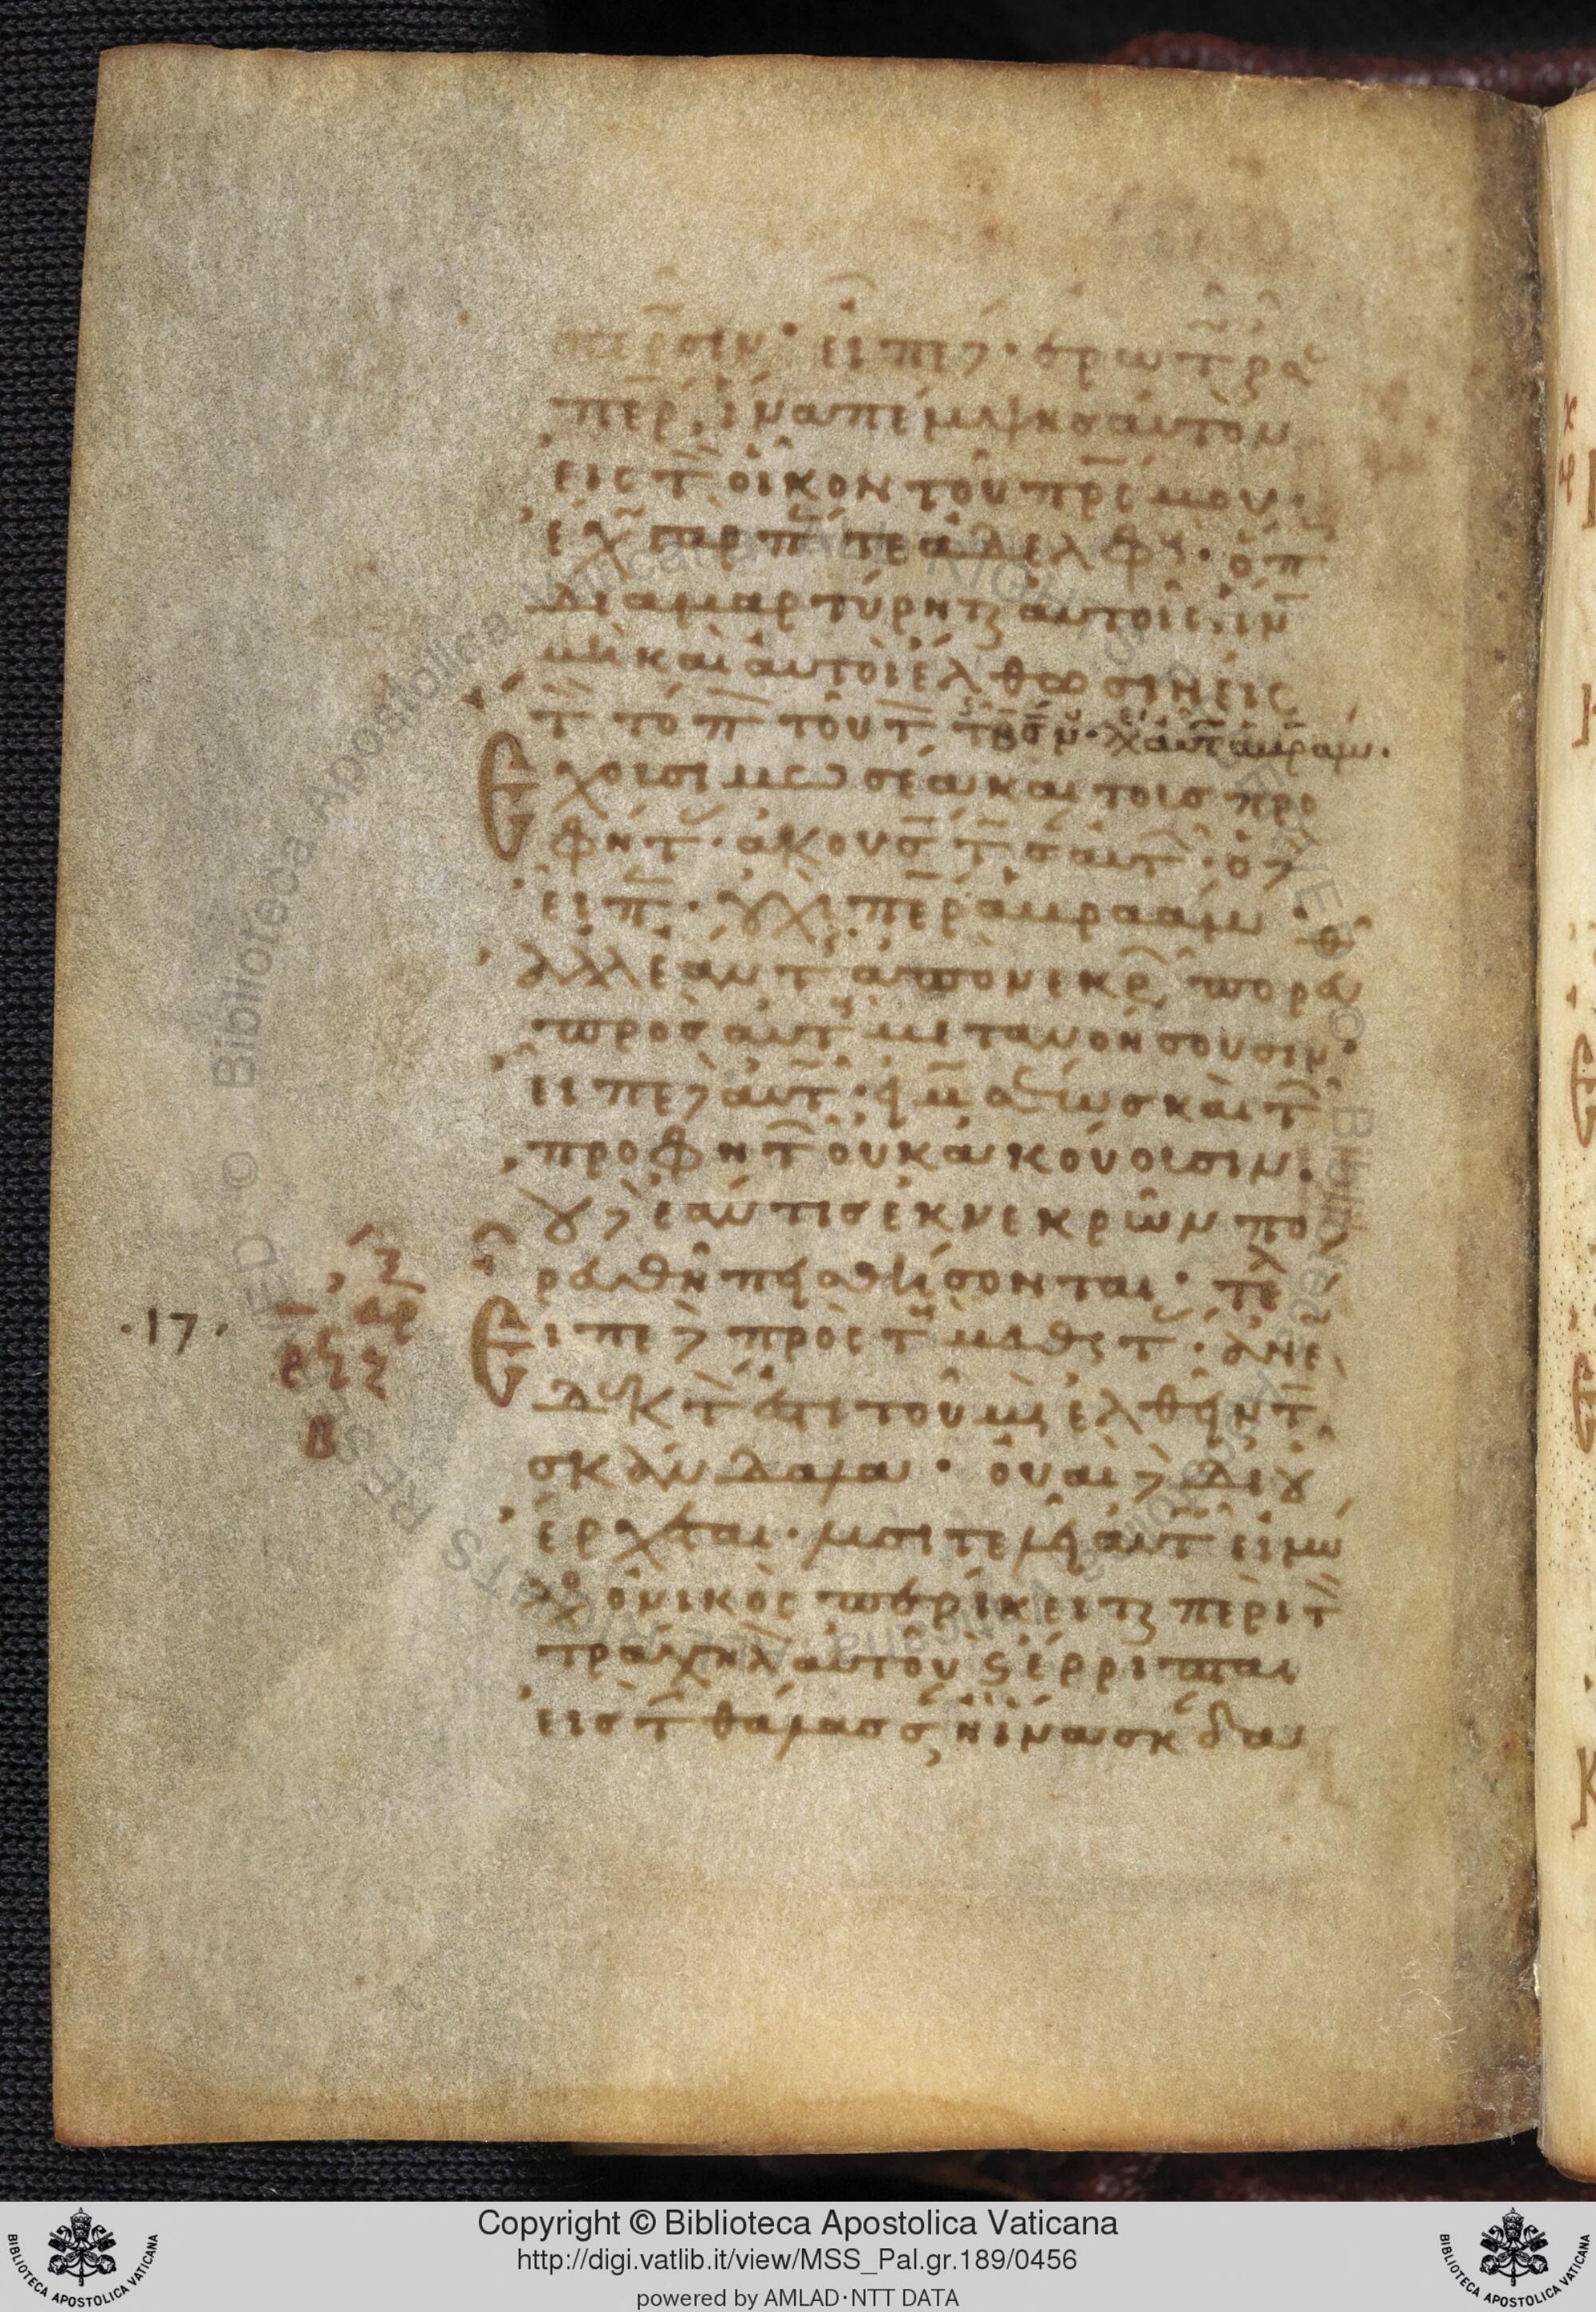 περῶσιν· εἶπε δέ· ἐρωτῶ σε
περ, ἵνα πέμψῃς αὐτὸν
εἰς τ οἶκον τοῦ πρς μου·
ἔχ γαρ πέντε ἀδελφους· ὅπ
διαμαρτύρητ αὐτοῖς, ἵν
μὴ καὶ αὐτοὶ ἔλθωσιν εἰς
τ τόπ τοῦτ τῆς βασάν· λέγει αὐτ ἀβραάμ·
Ἔχουσι μωσέα καὶ τοὺς προ
φήτ· ἀκουσ τωσ αὐτ· ὁ δε
εἶπ· οὐχὶ περ ἀβραάμ·
ἀλλ ἐάν τ ἀπὸ νεκρ πορευ
πρὸς αὐτ μετανοήσουσιν·
εἶπε δὲ αὐτ· εἰ μωσέως καὶ τ
προφητ οὐκ ἀκούουσιν·
οὐδὲ ἐάν τις ἐκ νεκρῶν πο
ρευθῆ πεισθήσονται· τελ
Εἶπε δὲ πρὸς τ μαθητ· ἀνέν
δεκτ ἐστι τοῦ μὴ ἐλθεῖν τ
σκάνδαλα· οὐαὶ δὲ δι οὗ
ἔρχεται· λυσιτελεῖ αὐτ εἰ μύ
λος ὀνικὸς περίκειτ περὶ τ
τράχηλ αὐτοῦ καὶ ἔρριπται
εἰς τ θάλασσ, ἢ ἵνα σκανδα
·17·
Copyright © Biblioteca Apostolica Vaticana
http://digi.vatlib.it/view/MSS_Pal.gr.189/0456
powered by AMLAD·NTT DATA
BIBLIOTECA APOSTOLICA VATICANA
BIBLIOTECA APOSTOLICA VATICANA